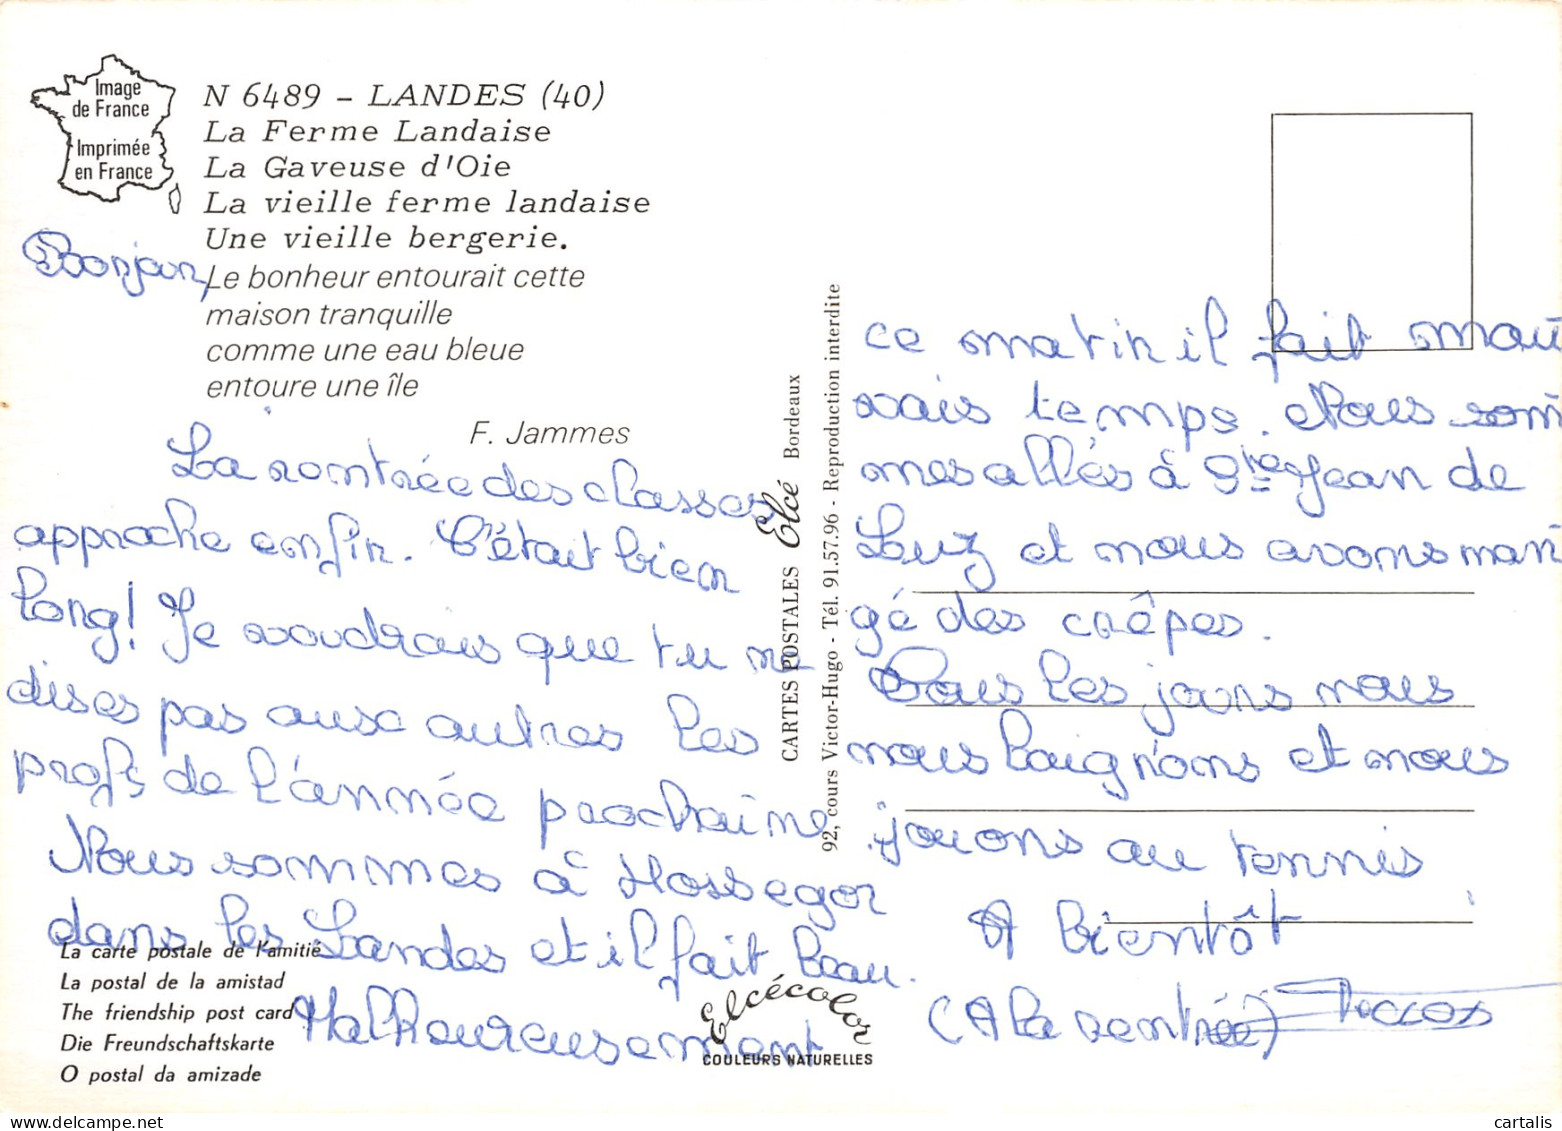 Image
de France
Imprimée
en France
N 6489 - LANDES (40)
La Ferme Landaise
La Gaveuse d'Oie
La vieille ferme landaise
Une vieille bergerie.
Le bonheur entourait cette
maison tranquille
comme une eau bleue
entoure une île
F. Jammes
Bonjour,
La rentrée des classes
approche enfin. C'était bien
long! Je voudrais que tu me
dises pas aux autres les
profs de l'année prochaine
Nous sommes à Hossegor
dans les Landes et il fait beau.
Malheureusement
La carte postale de l'amitié
La postal de la amistad
The friendship post card
Die Freundschaftskarte
O postal da amizade
Elcécolor
COULEURS NATURELLES
CARTES POSTALES Elcé Bordeaux
92, cours Victor-Hugo - Tél. 91.57.96 - Reproduction interdite
ce matin il fait mau
vais temps. Nous som
mes allés à Ste Jean de
Luz et nous avons man
gé des crêpes.
Tous les jours nous
nous baignons et nous
jouons au tennis
A bientôt
(A la rentrée)
cartalis